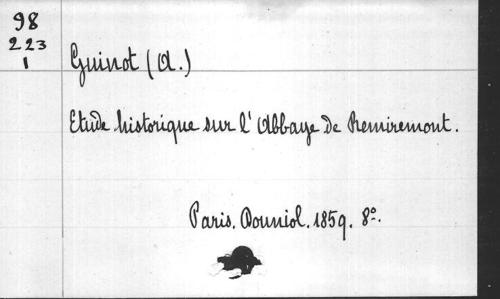 98
223
1
Guinot (A.)
Etude historique sur l'Abbaye de Remiremont.
Paris. Douniol. 1859. 8º.